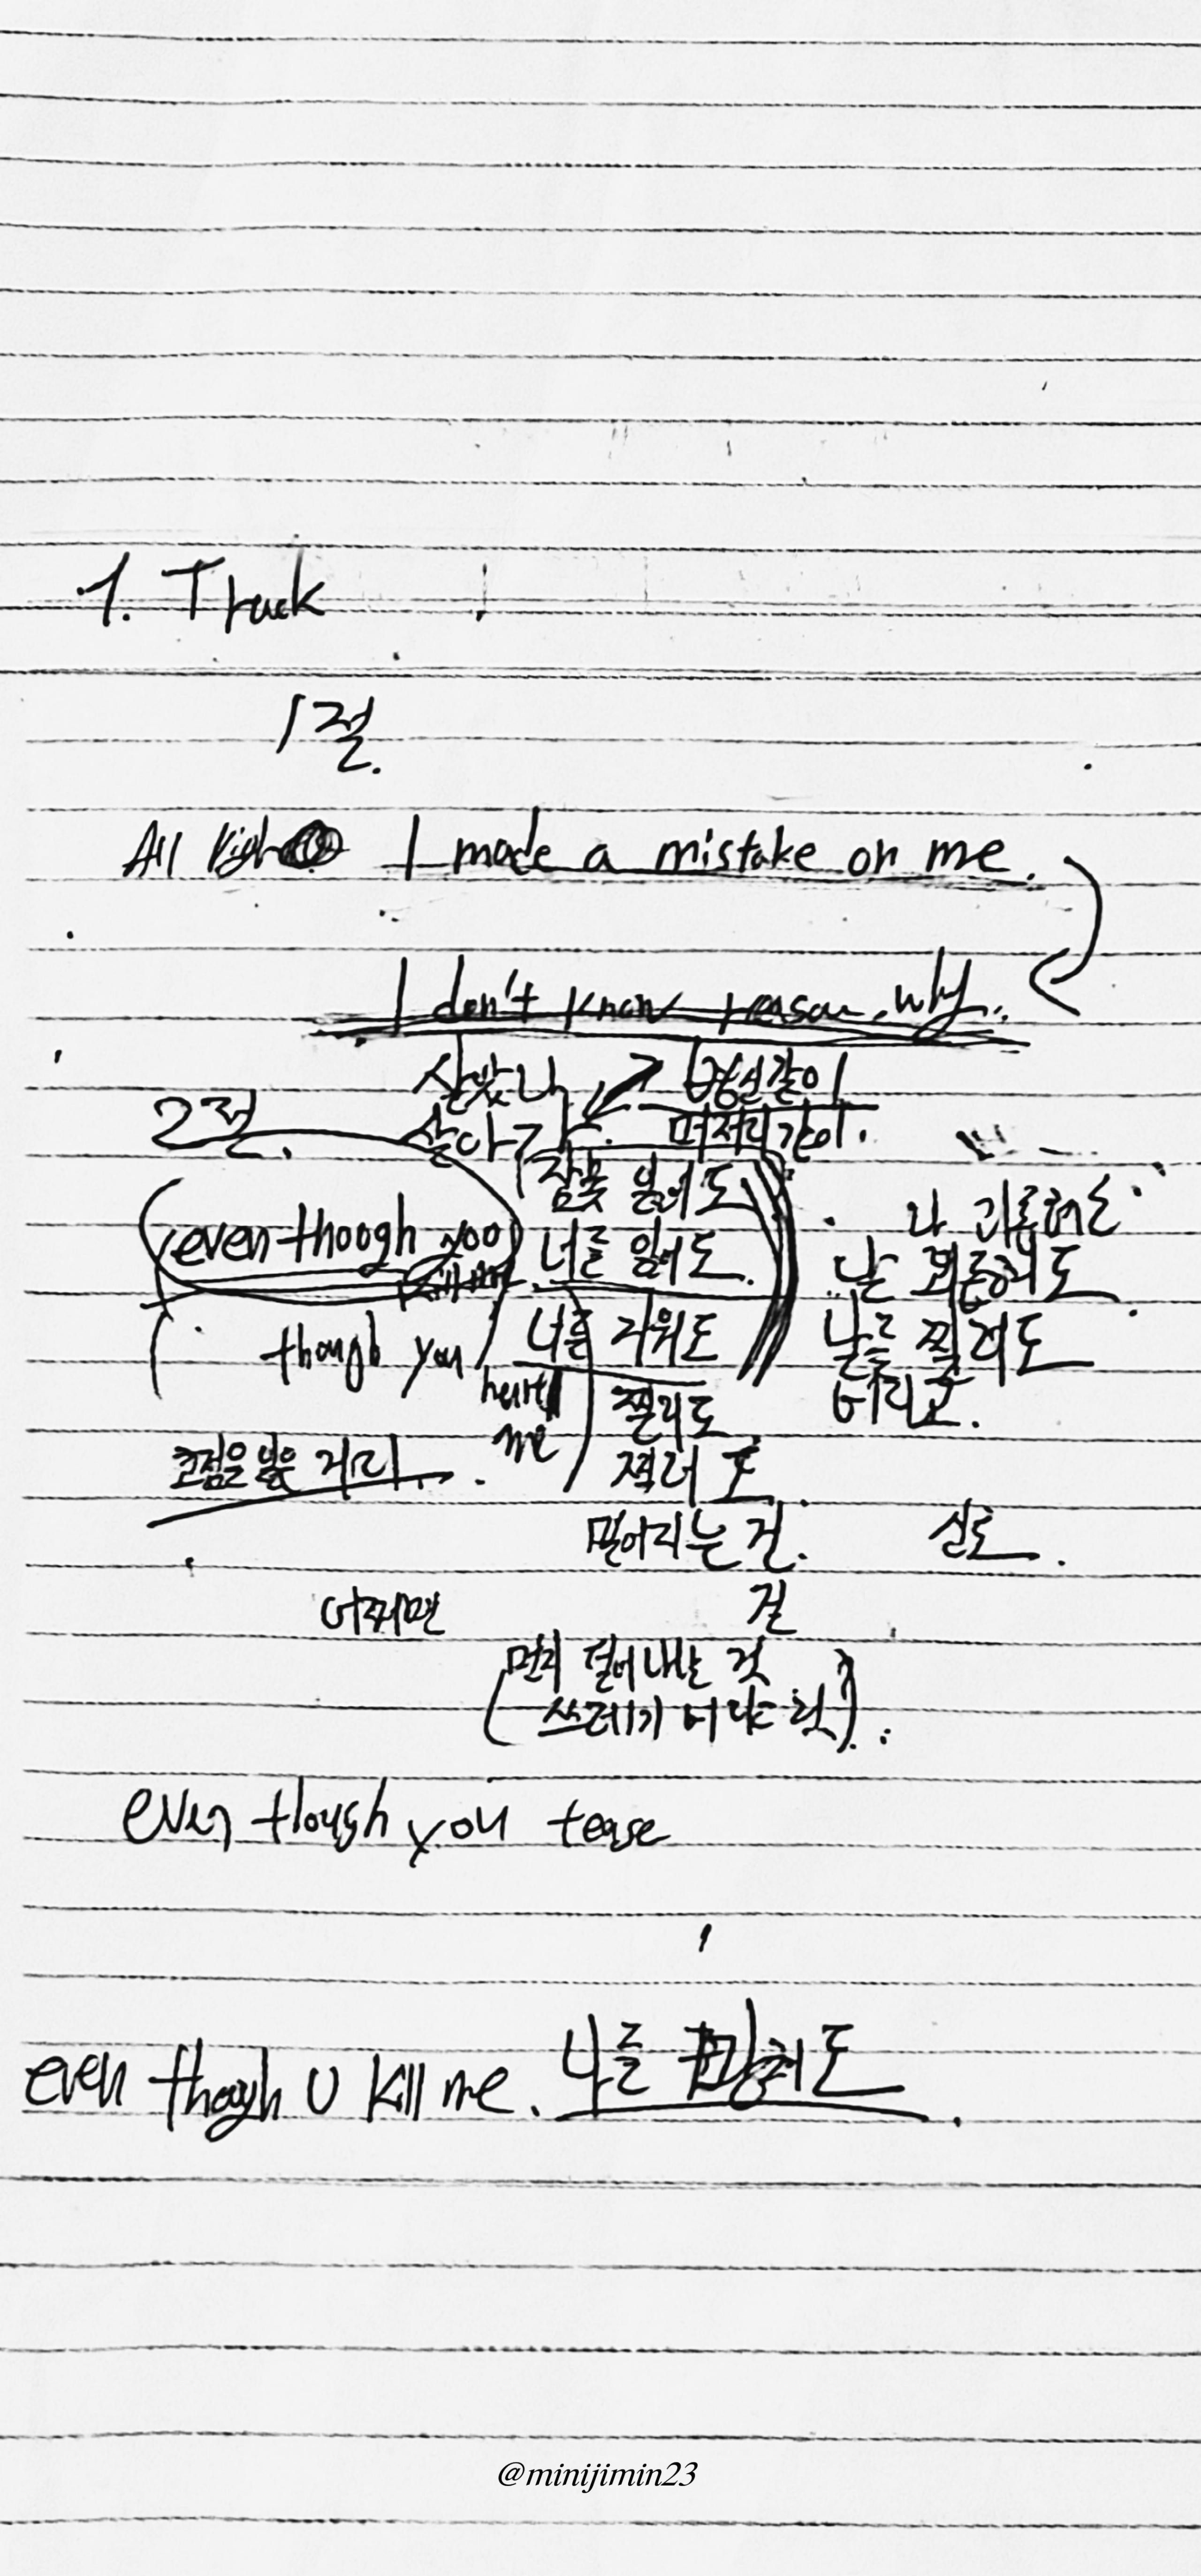 1. Track
1절.
All Righ I made a mistake on me.
I don't know reason why..
살았나 병신같이
2절. 살아가 머저리같이.
잠못 이뤄도
even though you kill me 너를 잃어도.
날 괴롭혀도
though you hurt me 너를 지워도
나를 찔러도
버리고.
찔러도
초점을 잃은 거리.
찍어도
밀어지는 건. 선로.
어쩌면 걸
(먼지 털어내는 것
쓰레기 버리는 것).
even though you tease
even though U kill me. 나를
@minijimin23